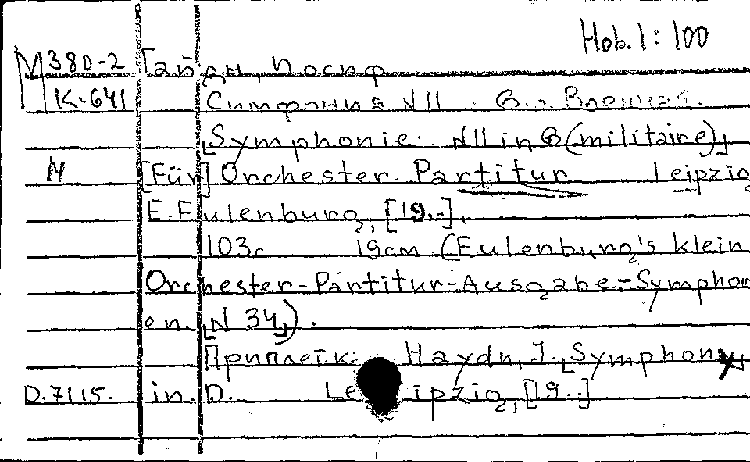 Hob. I: 100
М380-2 Гайдн, Йосиф
К-641 Симфония N11 . G. . Военная.
[Symphonie N11 in G (militaire)]
N [Für] Orchester. Partitur Leipzig
E. Eulenburg, [19..].
103с 19см (Eulenburg's klein
Orchester-Partitur-Ausgabe-Symphon
en [N 34]).
Приплетк: Haydn, J. [Symphony]
D.7115. in D. Leipzig, [19..]